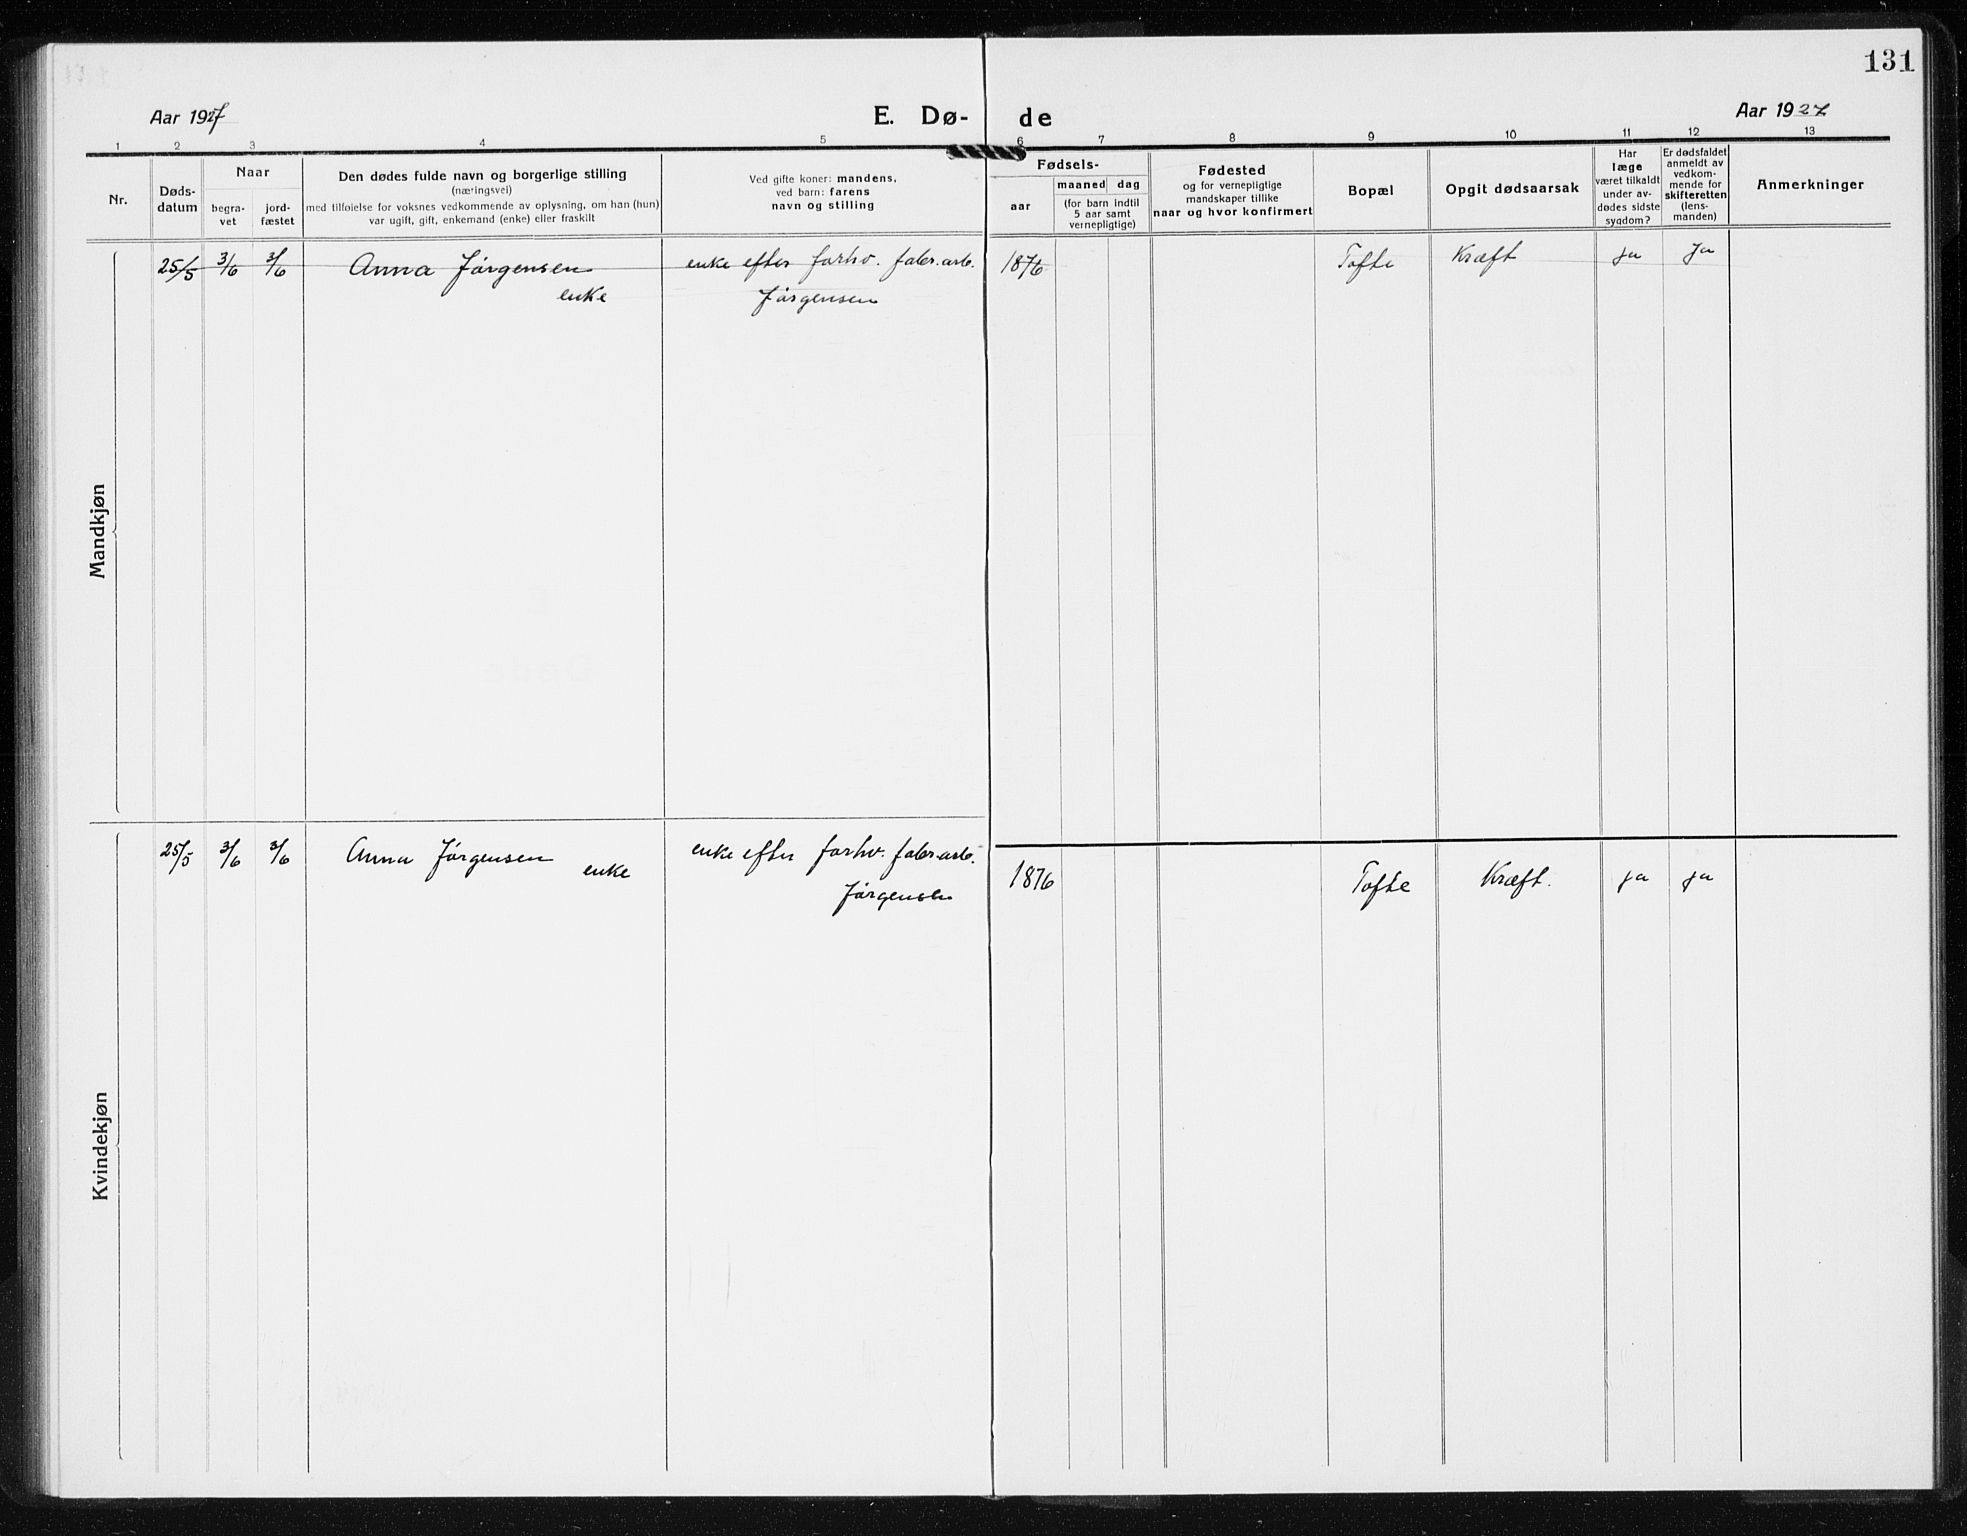 131
Aar 1927
E. Dø-
de
Aar 1927
1 2 3 4 5 6 7 8 9 10 11 12 13
Nr.
Døds-
datum
Naar
begra-
vet
jord-
fæstet
Den dødes fulde navn og borgerlige stilling
(næringsvei)
med tilføielse for voksnes vedkommende av oplysning, om han (hun)
var ugift, gift, enkemand (enke) eller fraskilt
Ved gifte koner: mandens,
ved barn: farens
navn og stilling
Fødsels-
aar
maaned dag
(for barn indtil
5 aar samt
vernepligtige)
Fødested
og for vernepligtige
mandskaper tillike
naar og hvor konfirmert
Bopæl
Opgit dødsaarsak
Har
læge
været tilkaldt
under av-
dødes sidste
sygdom?
Er dødsfaldet
anmeldt av
vedkom-
mende for
skifteretten
(lens-
manden)
Anmerkninger
Mandkjøn
25/5 3/6 3/6 Anna Jørgensen enke efter forhv. fabr.arb. 1876 Tofte Kræft ja Ja
enke Jørgensen
Kvindekjøn
25/5 3/6 3/6 Anna Jørgensen enke efter forhv. fabr.arb. 1876 Tofte Kræft. ja ja
enke Jørgensen